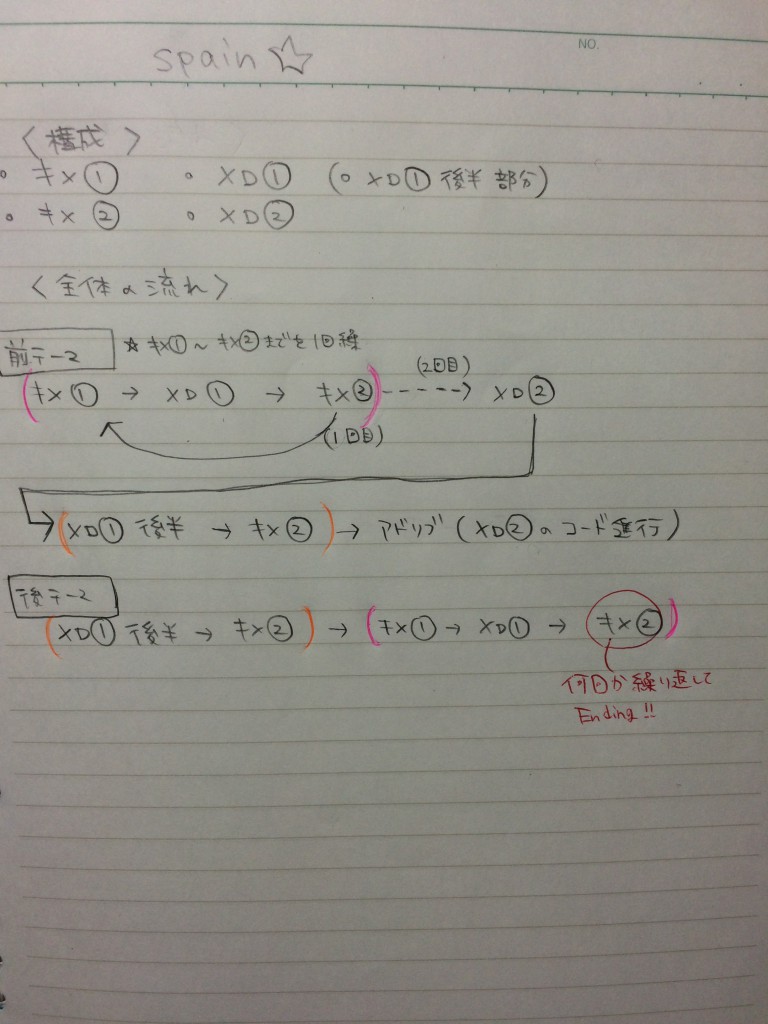 NO.
spain☆
〈構成〉
○ キメ① ○ メロ① (○ メロ① 後半部分)
○ キメ② ○ メロ②
〈全体の流れ〉
前テーマ ☆ キメ①～キメ②までを1回繰
(キメ① → メロ① → キメ②) (2回目) → メロ②
(1回目)
(メロ① 後半 → キメ②) → アドリブ (メロ②のコード進行)
後テーマ
(メロ① 後半 → キメ②) → (キメ① → メロ① → キメ②)
何回か繰り返して
Ending!!